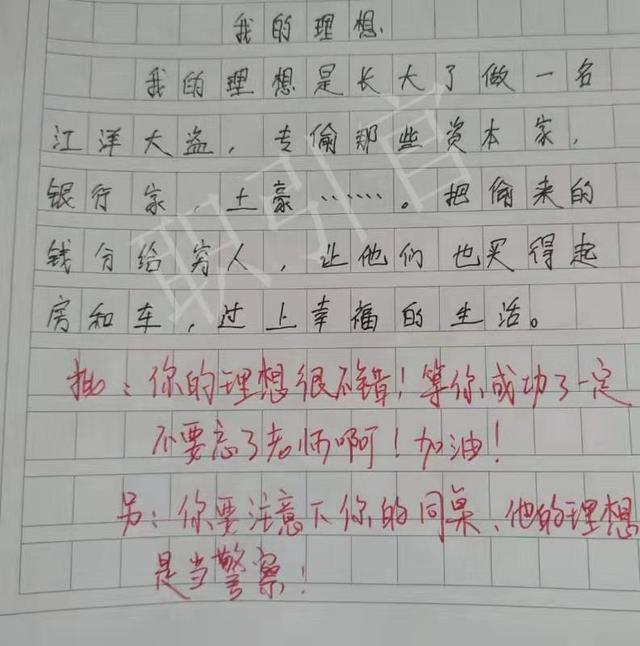 我的理想.
我的理想是长大了做一名
江洋大盗，专偷那些资本家，
银行家、土豪……。把偷来的
钱分给穷人，让他们也买得起
房和车，过上幸福的生活。
批：你的理想很不错！等你成功了一定
不要忘了老师啊！加油！
另：你要注意下你的同桌、他的理想
是当警察！
职引官